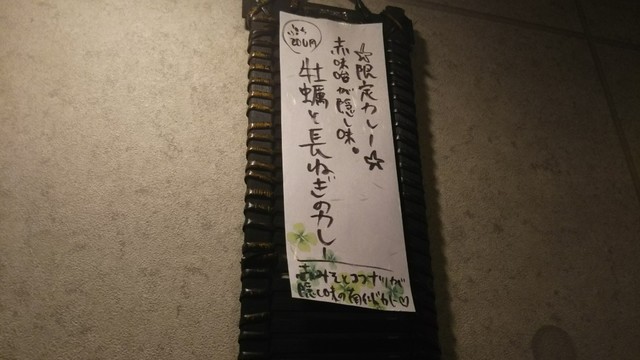 ☆限定カレー☆
赤味噌が隠し味。
牡蠣と長ねぎのカレー
赤みそとココナッツが
隠し味の南インドカレー♡